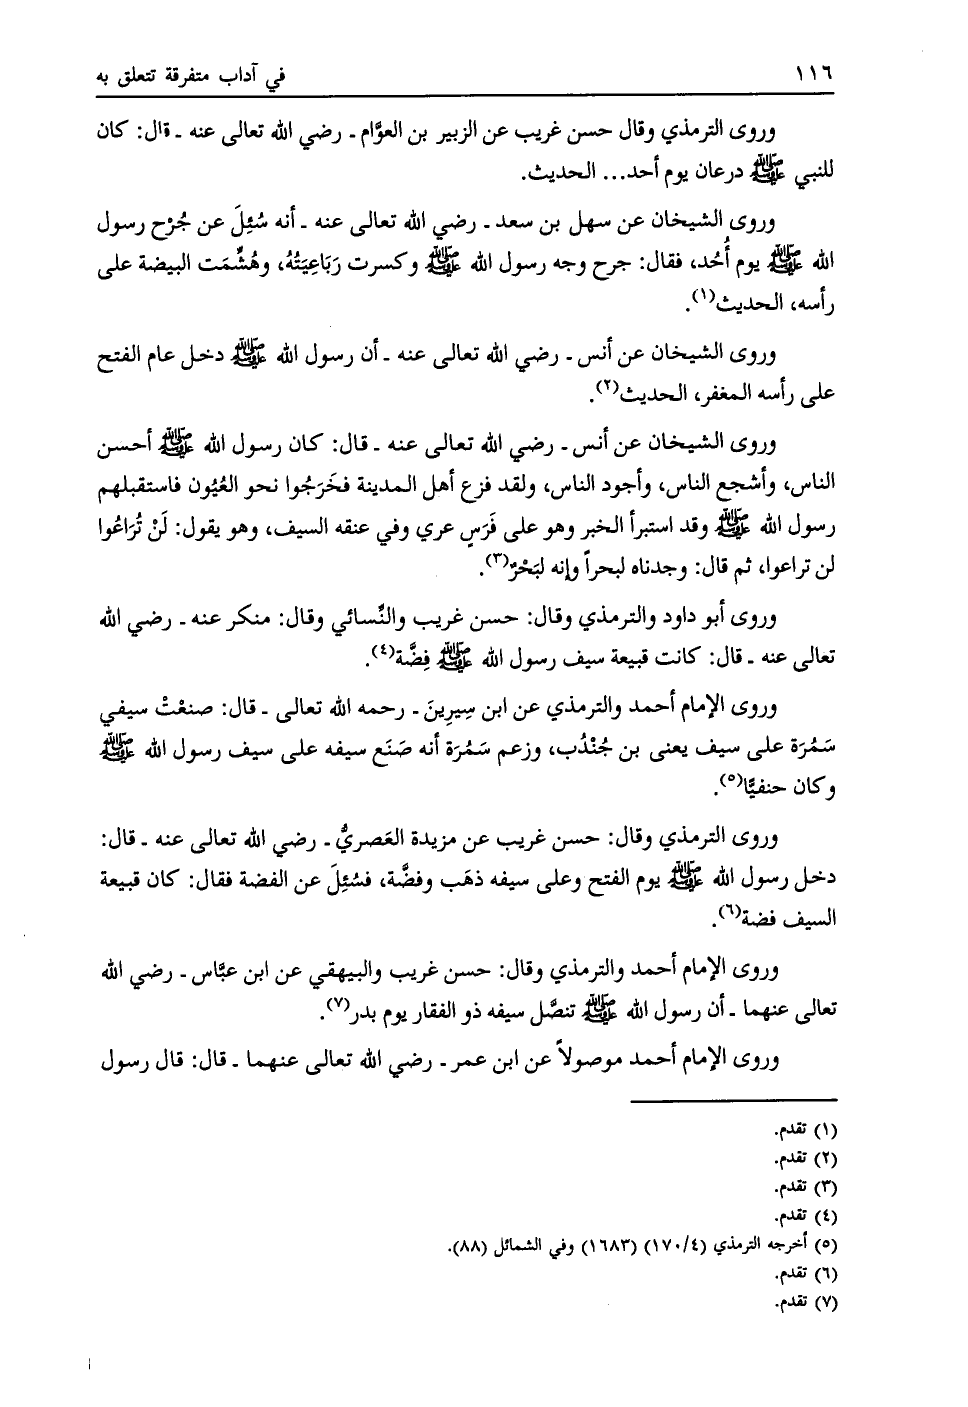 ١١٦ في آداب متفرقة تتعلق به
وروى الترمذي وقال حسن غريب عن الزبير بن العوَّام ـ رضي الله تعالى عنه ـ قال: كان
للنبي ﷺ درعان يوم أحد... الحديث.
وروى الشيخان عن سهل بن سعد ـ رضي الله تعالى عنه ـ أنه سُئِلَ عن جُرْح رسول
الله ﷺ يوم أُحُد، فقال: جرح وجه رسول الله ﷺ وكسرت رَبَاعِيَتُهُ، وهُشِّمَت البيضة على
رأسه، الحديث(١).
وروى الشيخان عن أنس ـ رضي الله تعالى عنه ـ أن رسول الله ﷺ دخل عام الفتح
على رأسه المغفر، الحديث(٢).
وروى الشيخان عن أنس ـ رضي الله تعالى عنه ـ قال: كان رسول الله ﷺ أحسن
الناس، وأشجع الناس، وأجود الناس، ولقد فزع أهل المدينة فخَرَجُوا نحو العُيُون فاستقبلهم
رسول الله ﷺ وقد استبرأ الخبر وهو على فَرَسٍ عري وفي عنقه السيف، وهو يقول: لَنْ تُرَاعُوا
لن تراعوا، ثم قال: وجدناه لبحراً وإنه لبَحْرٌ(٣).
وروى أبو داود والترمذي وقال: حسن غريب والنِّسائي وقال: منكر عنه ـ رضي الله
تعالى عنه ـ قال: كانت قبيعة سيف رسول الله ﷺ فِضَّة(٤).
وروى الإمام أحمد والترمذي عن ابن سِيرِينَ ـ رحمه الله تعالى ـ قال: صنعْتْ سيفي
سَمُرَة على سيف يعنى بن جُنْدُب، وزعم سَمُرَة أنه صَنَع سيفه على سيف رسول الله ﷺ
وكان حنفيًّا(٥).
وروى الترمذي وقال: حسن غريب عن مزيدة العَصريُّ ـ رضي الله تعالى عنه ـ قال:
دخل رسول الله ﷺ يوم الفتح وعلى سيفه ذهَب وفضَّة، فسُئِلَ عن الفضة فقال: كان قبيعة
السيف فضة(٦).
وروى الإمام أحمد والترمذي وقال: حسن غريب والبيهقي عن ابن عبَّاس ـ رضي الله
تعالى عنهما ـ أن رسول الله ﷺ تنصَّل سيفه ذو الفقار يوم بدر(٧).
وروى الإمام أحمد موصولاً عن ابن عمر ـ رضي الله تعالى عنهما ـ قال: قال رسول
(١) تقدم.
(٢) تقدم.
(٣) تقدم.
(٤) تقدم.
(٥) أخرجه الترمذي (١٧٠/٤) (١٦٨٣) وفي الشمائل (٨٨).
(٦) تقدم.
(٧) تقدم.